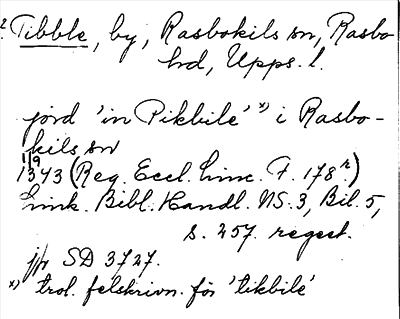 Tibble, by, Rasbokils sn, Rasbo
hd, Upps. l.
jord 'in Pikbile' x) i Rasbo-
kils sn
1/9
1343 (Reg. Eccl. Linc. F. 178 r.)
Link. Bibl. Handl. NS. 3, Bil. 5,
s. 257. regest.
jfr SD 3727.
x) trol. felskrivn. för 'tikbile'